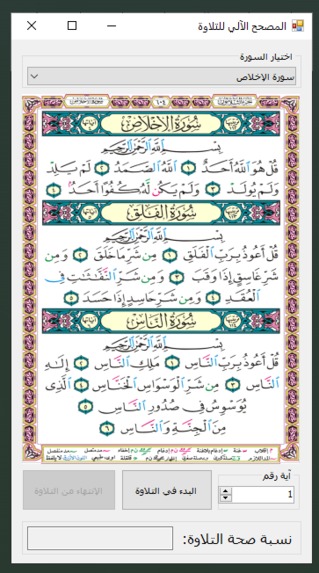 المصحح الآلي للتلاوة
اختيار السورة
سورة الإخلاص
٦٠٤
سُورَةُ الْإِخْلَاصِ
بِسْمِ اللَّهِ الرَّحْمَٰنِ الرَّحِيمِ
قُلْ هُوَ اللَّهُ أَحَدٌ ١ اللَّهُ الصَّمَدُ ٢ لَمْ يَلِدْ
وَلَمْ يُولَدْ ٣ وَلَمْ يَكُن لَّهُ كُفُوًا أَحَدٌ ٤
سُورَةُ الْفَلَقِ
بِسْمِ اللَّهِ الرَّحْمَٰنِ الرَّحِيمِ
قُلْ أَعُوذُ بِرَبِّ الْفَلَقِ ١ مِن شَرِّ مَا خَلَقَ ٢ وَمِن
شَرِّ غَاسِقٍ إِذَا وَقَبَ ٣ وَمِن شَرِّ النَّفَّٰثَٰتِ فِي
الْعُقَدِ ٤ وَمِن شَرِّ حَاسِدٍ إِذَا حَسَدَ ٥
سُورَةُ النَّاسِ
بِسْمِ اللَّهِ الرَّحْمَٰنِ الرَّحِيمِ
قُلْ أَعُوذُ بِرَبِّ النَّاسِ ١ مَلِكِ النَّاسِ ٢ إِلَٰهِ
النَّاسِ ٣ مِن شَرِّ الْوَسْوَاسِ الْخَنَّاسِ ٤ الَّذِي
يُوَسْوِسُ فِي صُدُورِ النَّاسِ ٥
مِنَ الْجِنَّةِ وَالنَّاسِ ٦
آية رقم
1
البدء في التلاوة
الانتهاء من التلاوة
نسبة صحة التلاوة: